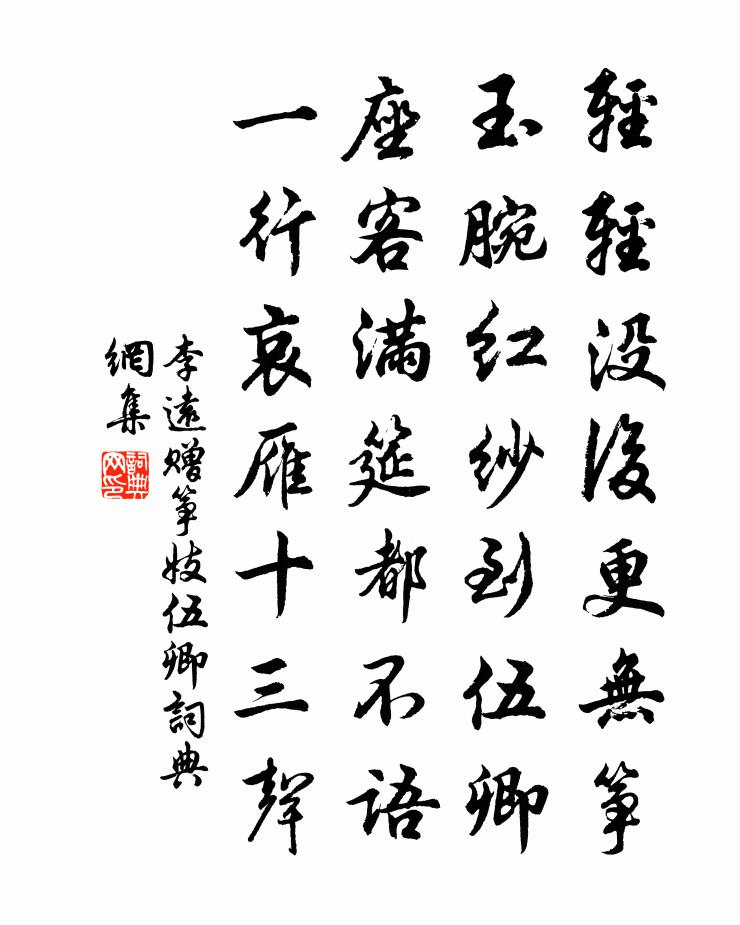 輕輕没後更無箏
玉腕紅紗到伍卿
座客滿筵都不語
一行哀雁十三聲
李遠贈箏妓伍卿詞典
網集
詞典
网印